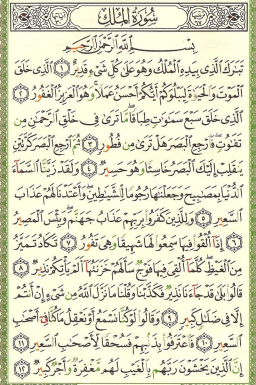 سُورَةُ الْمُلْكِ
بِسْمِ اللَّهِ الرَّحْمَٰنِ الرَّحِيمِ
تَبَارَكَ الَّذِي بِيَدِهِ الْمُلْكُ وَهُوَ عَلَىٰ كُلِّ شَيْءٍ قَدِيرٌ ١ الَّذِي خَلَقَ
الْمَوْتَ وَالْحَيَاةَ لِيَبْلُوَكُمْ أَيُّكُمْ أَحْسَنُ عَمَلًا وَهُوَ الْعَزِيزُ الْغَفُورُ ٢
الَّذِي خَلَقَ سَبْعَ سَمَاوَاتٍ طِبَاقًا مَّا تَرَىٰ فِي خَلْقِ الرَّحْمَٰنِ مِن
تَفَاوُتٍ فَارْجِعِ الْبَصَرَ هَلْ تَرَىٰ مِن فُطُورٍ ٣ ثُمَّ ارْجِعِ الْبَصَرَ كَرَّتَيْنِ
يَنقَلِبْ إِلَيْكَ الْبَصَرُ خَاسِئًا وَهُوَ حَسِيرٌ ٤ وَلَقَدْ زَيَّنَّا السَّمَاءَ
الدُّنْيَا بِمَصَابِيحَ وَجَعَلْنَاهَا رُجُومًا لِّلشَّيَاطِينِ وَأَعْتَدْنَا لَهُمْ عَذَابَ
السَّعِيرِ ٥ وَلِلَّذِينَ كَفَرُوا بِرَبِّهِمْ عَذَابُ جَهَنَّمَ وَبِئْسَ الْمَصِيرُ
٦ إِذَا أُلْقُوا فِيهَا سَمِعُوا لَهَا شَهِيقًا وَهِيَ تَفُورُ ٧ تَكَادُ تَمَيَّزُ
مِنَ الْغَيْظِ كُلَّمَا أُلْقِيَ فِيهَا فَوْجٌ سَأَلَهُمْ خَزَنَتُهَا أَلَمْ يَأْتِكُمْ نَذِيرٌ ٨
قَالُوا بَلَىٰ قَدْ جَاءَنَا نَذِيرٌ فَكَذَّبْنَا وَقُلْنَا مَا نَزَّلَ اللَّهُ مِن شَيْءٍ إِنْ أَنتُمْ
إِلَّا فِي ضَلَالٍ كَبِيرٍ ٩ وَقَالُوا لَوْ كُنَّا نَسْمَعُ أَوْ نَعْقِلُ مَا كُنَّا فِي أَصْحَابِ
السَّعِيرِ ١٠ فَاعْتَرَفُوا بِذَنبِهِمْ فَسُحْقًا لِّأَصْحَابِ السَّعِيرِ ١١
إِنَّ الَّذِينَ يَخْشَوْنَ رَبَّهُم بِالْغَيْبِ لَهُم مَّغْفِرَةٌ وَأَجْرٌ كَبِيرٌ ١٢